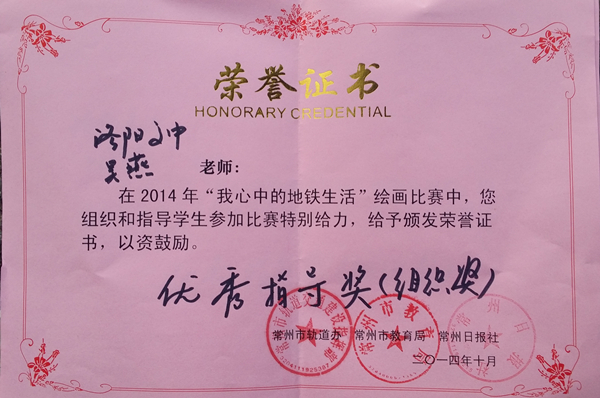 荣誉证书
HONORARY CREDENTIAL
洛阳初中
吴燕 老师：
在2014年“我心中的地铁生活”绘画比赛中，您
组织和指导学生参加比赛特别给力，给予颁发荣誉证
书，以资鼓励。
优秀指导奖（组织奖）
常州市轨道办 常州市教育局 常州日报社
二〇一四年十月
常州市教育局
常州日报社